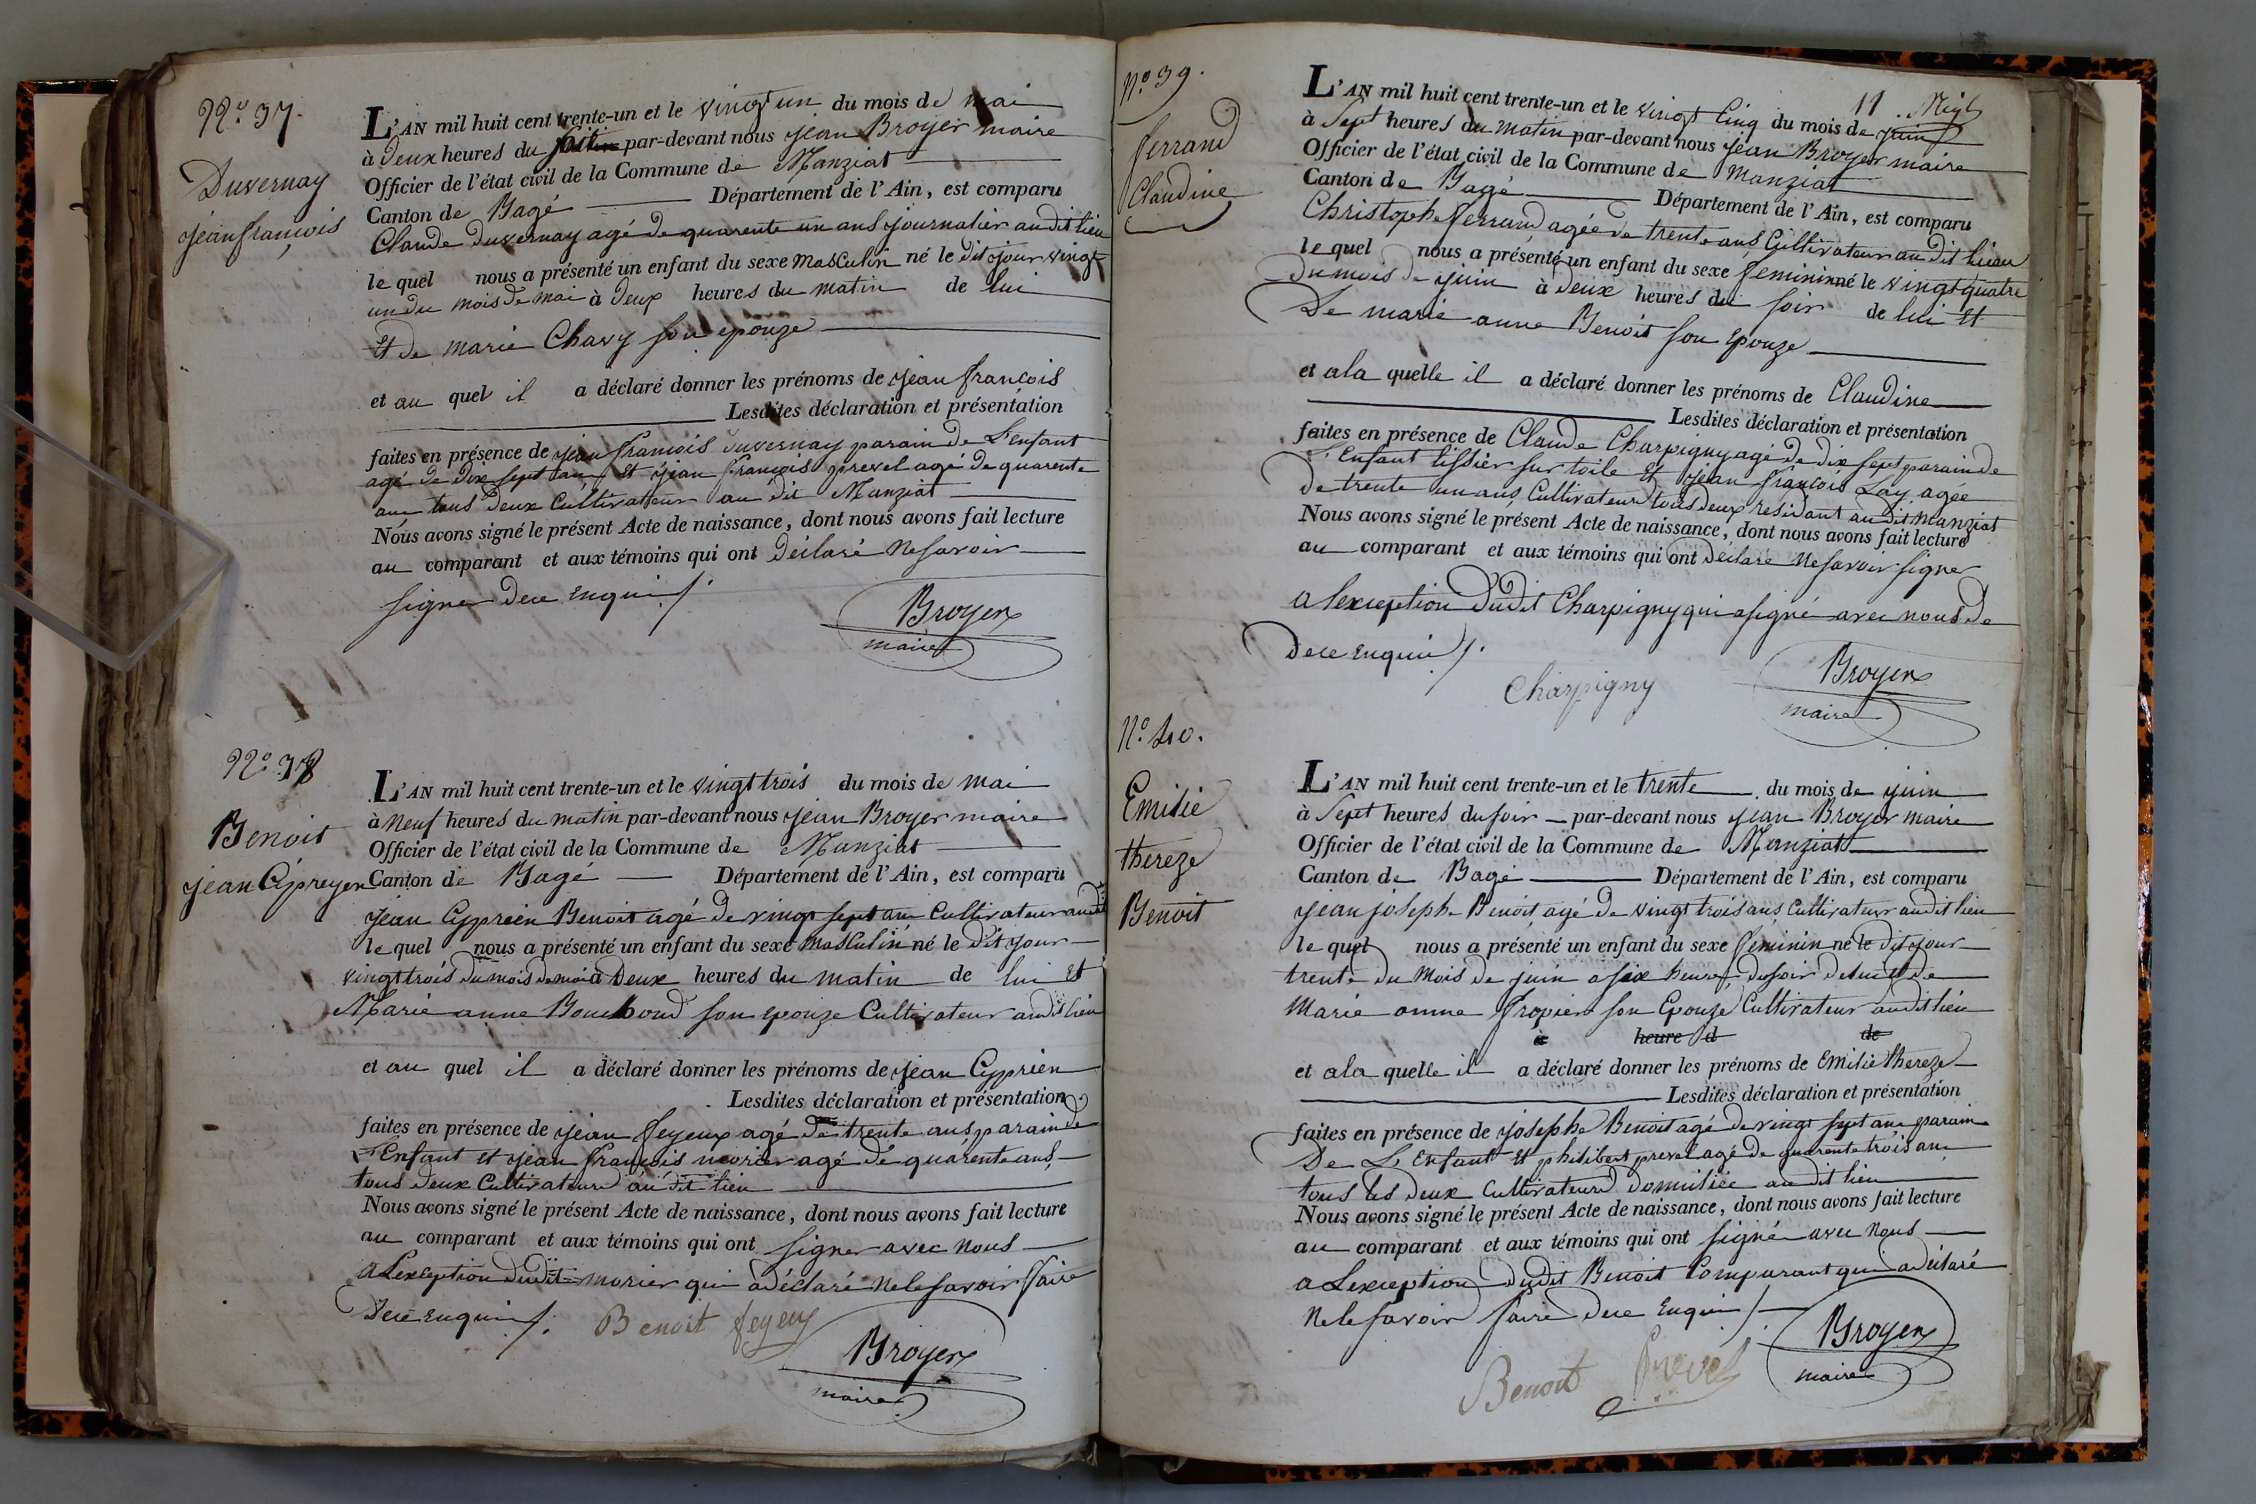 N.º 37.
Duvernay
jean françois
L'AN mil huit cent trente-un et le vingt un du mois de mai
à Deux heures du soir par-devant nous jean Broyer maire
Officier de l'état civil de la Commune de Manziat
Canton de Bagé Département de l'Ain, est comparu
Claude Duvernay agé de quarente un ans journalier au dit lieu
le quel nous a présenté un enfant du sexe masculin né le dit jour vingt
un du mois de mai à deux heures du matin de lui
Et de marie Chavy son epouze
et au quel il a déclaré donner les prénoms de jean françois
Lesdites déclaration et présentation
faites en présence de jean françois duvernay parain de L'enfant
agé de dix sept ans Et jean françois prevel agé de quarente
ans tous deux Cultivateur au dit Manziat
Nous avons signé le présent Acte de naissance, dont nous avons fait lecture
au comparant et aux témoins qui ont déclaré ne savoir
signer de ce Enquis /.
Broyer
maire
N.º 38
Benoit
jean Cipreyen
L'AN mil huit cent trente-un et le vingt trois du mois de mai
à neuf heures du matin par-devant nous jean Broyer maire
Officier de l'état civil de la Commune de Manziat
Canton de Bagé Département de l'Ain, est comparu
jean Cyprien Benoit agé de vingt sept ans Cultivateur audit
le quel nous a présenté un enfant du sexe masculin né le dit jour
vingt trois du mois de mai à Deux heures du matin de lui Et
Marie anne Bouchoud son epouze Cultivateur au dit lieu
et au quel il a déclaré donner les prénoms de jean Cyprien
Lesdites déclaration et présentation
faites en présence de jean feyeux agé de trente ans parain de
L'Enfant Et jean françois morier agé de quarente ans
tous deux Cultivateurs au dit lieu
Nous avons signé le présent Acte de naissance, dont nous avons fait lecture
au comparant et aux témoins qui ont signer avec nous
a Lexception dudit morier qui a déclaré ne le savoir faire
de ce enquis /. Benoit feyeux
Broyer
maire
11
N.º 39.
ferrand
Claudine
L'AN mil huit cent trente-un et le vingt Cinq du mois de juin
à Sept heures du matin par-devant nous jean Broyer maire
Officier de l'état civil de la Commune de Manziat
Canton de Bagé Département de l'Ain, est comparu
Christophe ferrand agée de trente ans Cultivateur au dit lieu
le quel nous a présenté un enfant du sexe feminin né le vingt quatre
du mois de juin à deux heures du soir de lui Et
De marie anne Benoit son Epouze
et a la quelle il a déclaré donner les prénoms de Claudine
Lesdites déclaration et présentation
faites en présence de Claude Charpigny agé de dix sept parain de
L'Enfant tissier sur toile Et jean françois Lay agée
de trente un ans Cultivateur tous deux residant au dit manziat
Nous avons signé le présent Acte de naissance, dont nous avons fait lecture
au comparant et aux témoins qui ont déclaré ne savoir signer
a lexception dudit Charpigny qui a signé avec nous de
de ce enquis /.
Charpigny
Broyer
maire
N.º 40.
Emilie
thereze
Benoit
L'AN mil huit cent trente-un et le trente du mois de juin
à Sept heures du soir par-devant nous jean Broyer maire
Officier de l'état civil de la Commune de Manziat
Canton de Bagé Département de l'Ain, est comparu
jean joseph Benoit agé de vingt trois ans Cultivateur audit lieu
le quel nous a présenté un enfant du sexe feminin né le dit jour
trente du mois de juin a six heures du soir de lui et de
Marie anne fropier son Epouze Cultivateur au dit lieu
à heure d de
et a la quelle il a déclaré donner les prénoms de Emilie thereze
Lesdites déclaration et présentation
faites en présence de josephe Benoit agé de vingt sept ans parain
De L'Enfant et philibert prevel agé de quarente trois ans
tous les deux Cultivateurs domiciliée au dit lieu
Nous avons signé le présent Acte de naissance, dont nous avons fait lecture
au comparant et aux témoins qui ont signé avec nous
a Lexception dudit Benoit Comparant qui a déclaré
ne le savoir faire de ce Enquis /.
Broyer
maire
Benoit prevel